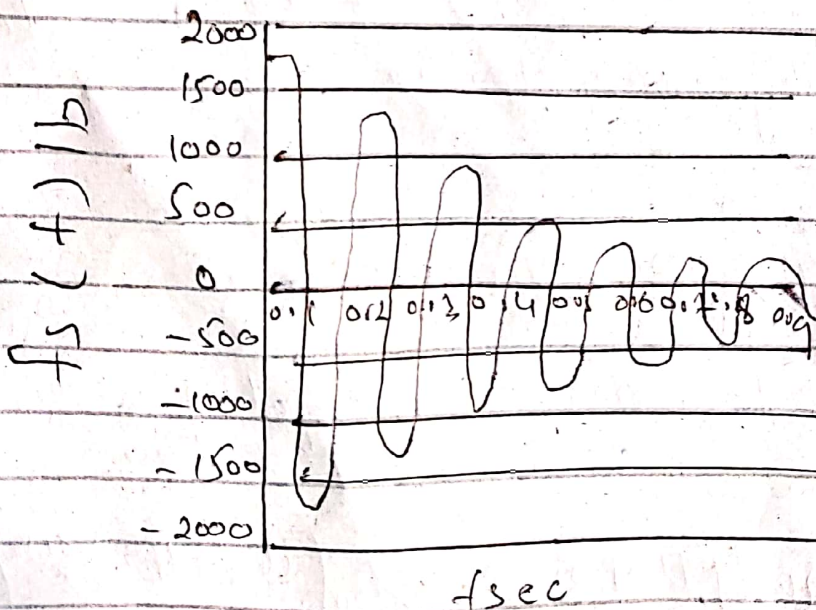 2000
1500
1000
500
0
-500
-1000
-1500
-2000
f(t) lb
0.1 0.2 0.3 0.4 0.5 0.6 0.7 0.8 0.9
t sec